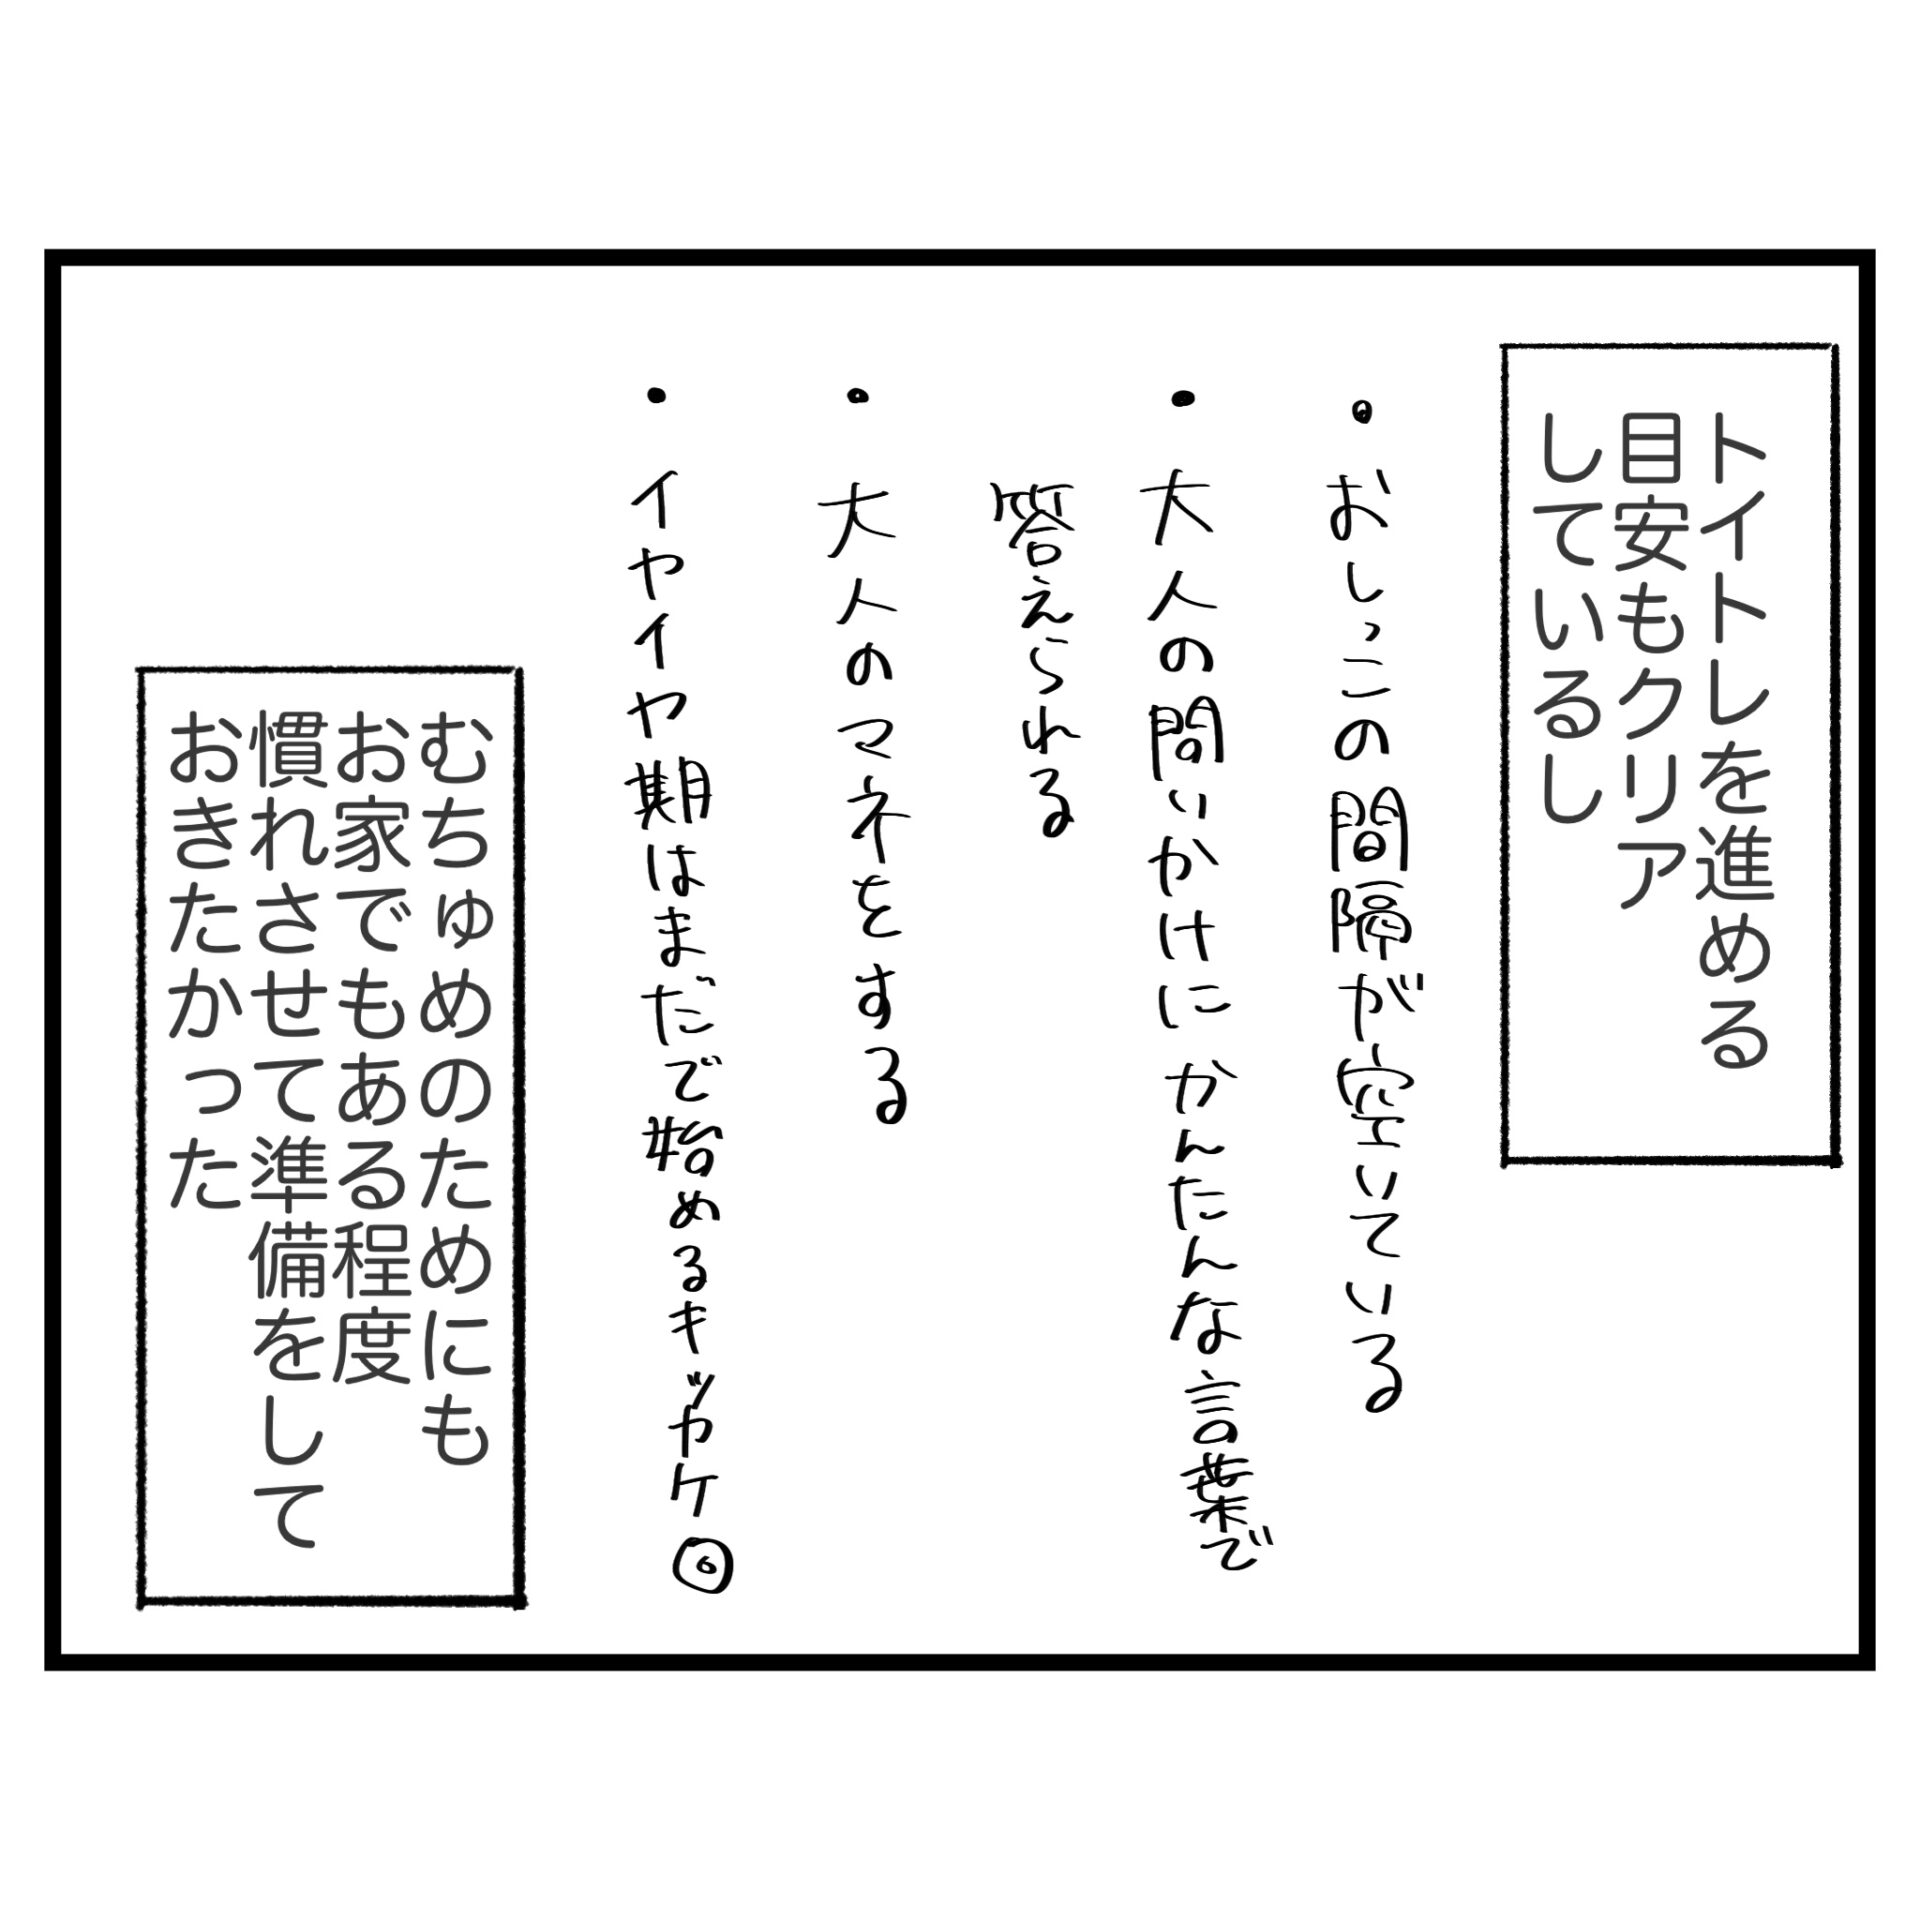 トイトレを進める
目安もクリア
しているし
・おしっこの間隔が空いている
・大人の問いかけにかんたんな言葉で
答えられる
・大人のマネをする
・イヤイヤ期はまだで始めるキッカケ◎
むちゅめのためにも
お家でもある程度
慣れさせて準備をして
おきたかった